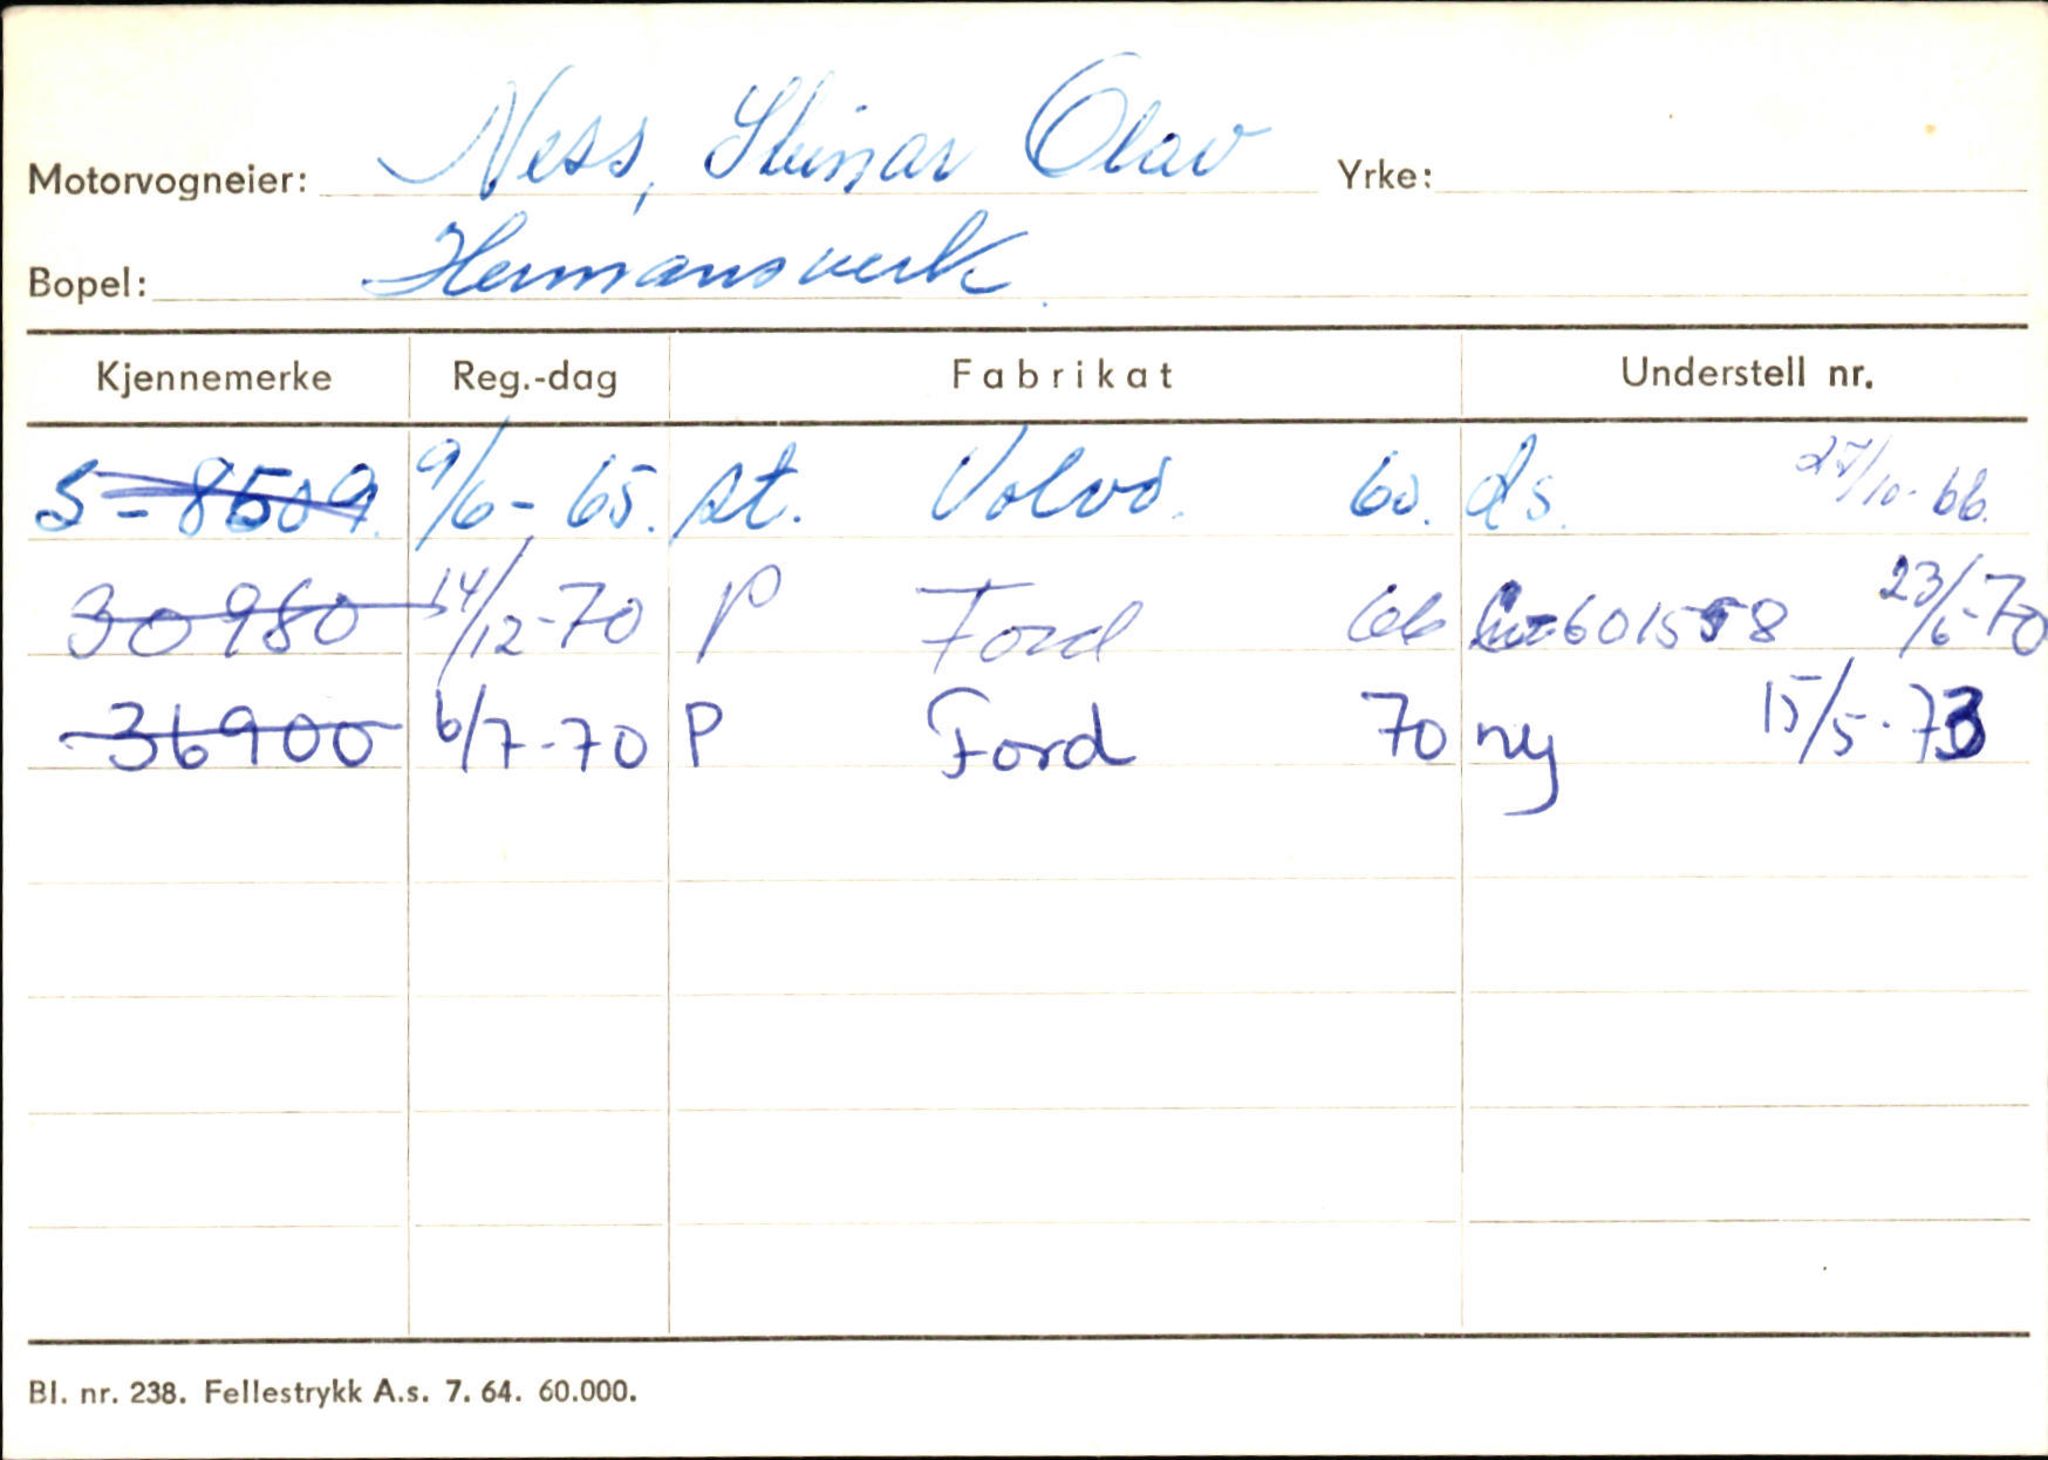 Motorvogneier: Ness, Steinar Olav Yrke:
Bopel: Hermansverk.
Kjennemerke Reg.-dag Fabrikat Understell nr.
S-8509. 9/6-65. st. Volvo. 60. ds. 27/10-66.
30980 14/12-70 P Ford 66 601558 23/6-70
36900 6/7-70 P Ford 70 ny 15/5-73
Bl. nr. 238. Fellestrykk A.s. 7. 64. 60.000.